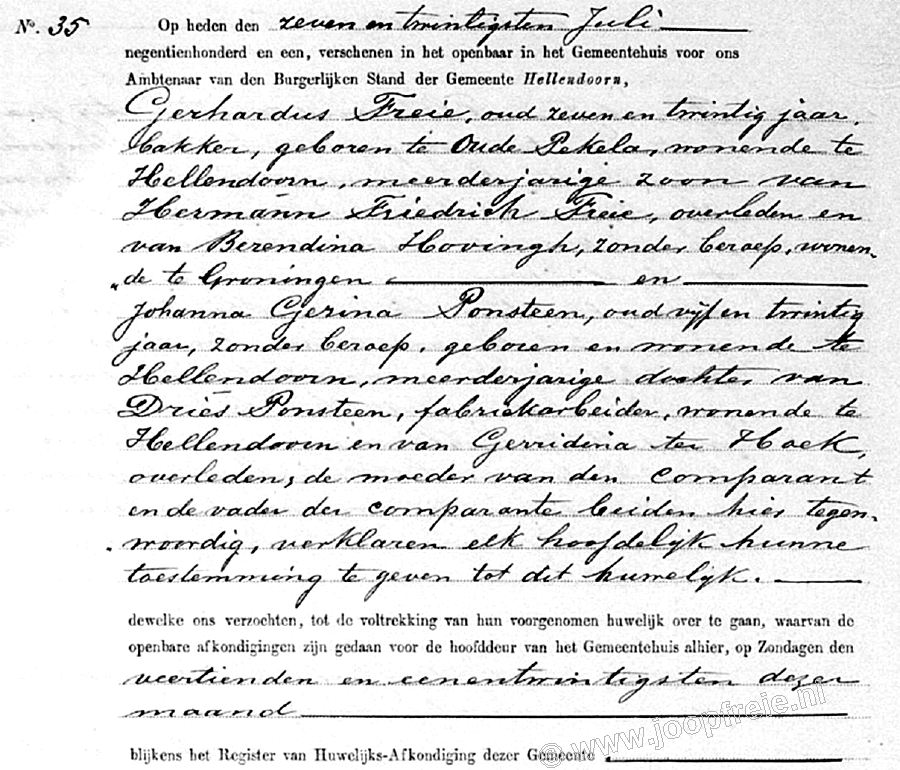 No. 35 Op heden den zeven en twintigsten Juli
negentienhonderd en een, verschenen in het openbaar in het Gemeentehuis voor ons
Ambtenaar van den Burgerlijken Stand der Gemeente Hellendoorn,
Gerhardus Freie, oud zeven en twintig jaar,
bakker, geboren te Oude Pekela, wonende te
Hellendoorn, meerderjarige zoon van
Hermann Friedrich Freie, overleden en
van Berendina Hovingh, zonder beroep, wonen-
„de te Groningen ——— en ———
Johanna Gerina Ponsteen, oud vijf en twintig
jaar, zonder beroep, geboren en wonende te
Hellendoorn, meerderjarige dochter van
Driës Ponsteen, fabriekarbeider, wonende te
Hellendoorn en van Gerridina ter Hoek,
overleden; de moeder van den comparant
en de vader der comparante beiden hier tegen-
„woordig, verklaren elk hoofdelijk hunne
toestemming te geven tot dit huwelijk. ———
dewelke ons verzochten, tot de voltrekking van hun voorgenomen huwelijk over te gaan, waarvan de
openbare afkondigingen zijn gedaan voor de hoofddeur van het Gemeentehuis alhier, op Zondagen den
veertienden en eenentwintigsten dezer
maand ———
blijkens het Register van Huwelijks-Afkondiging dezer Gemeente ———
© www.joopfreie.nl